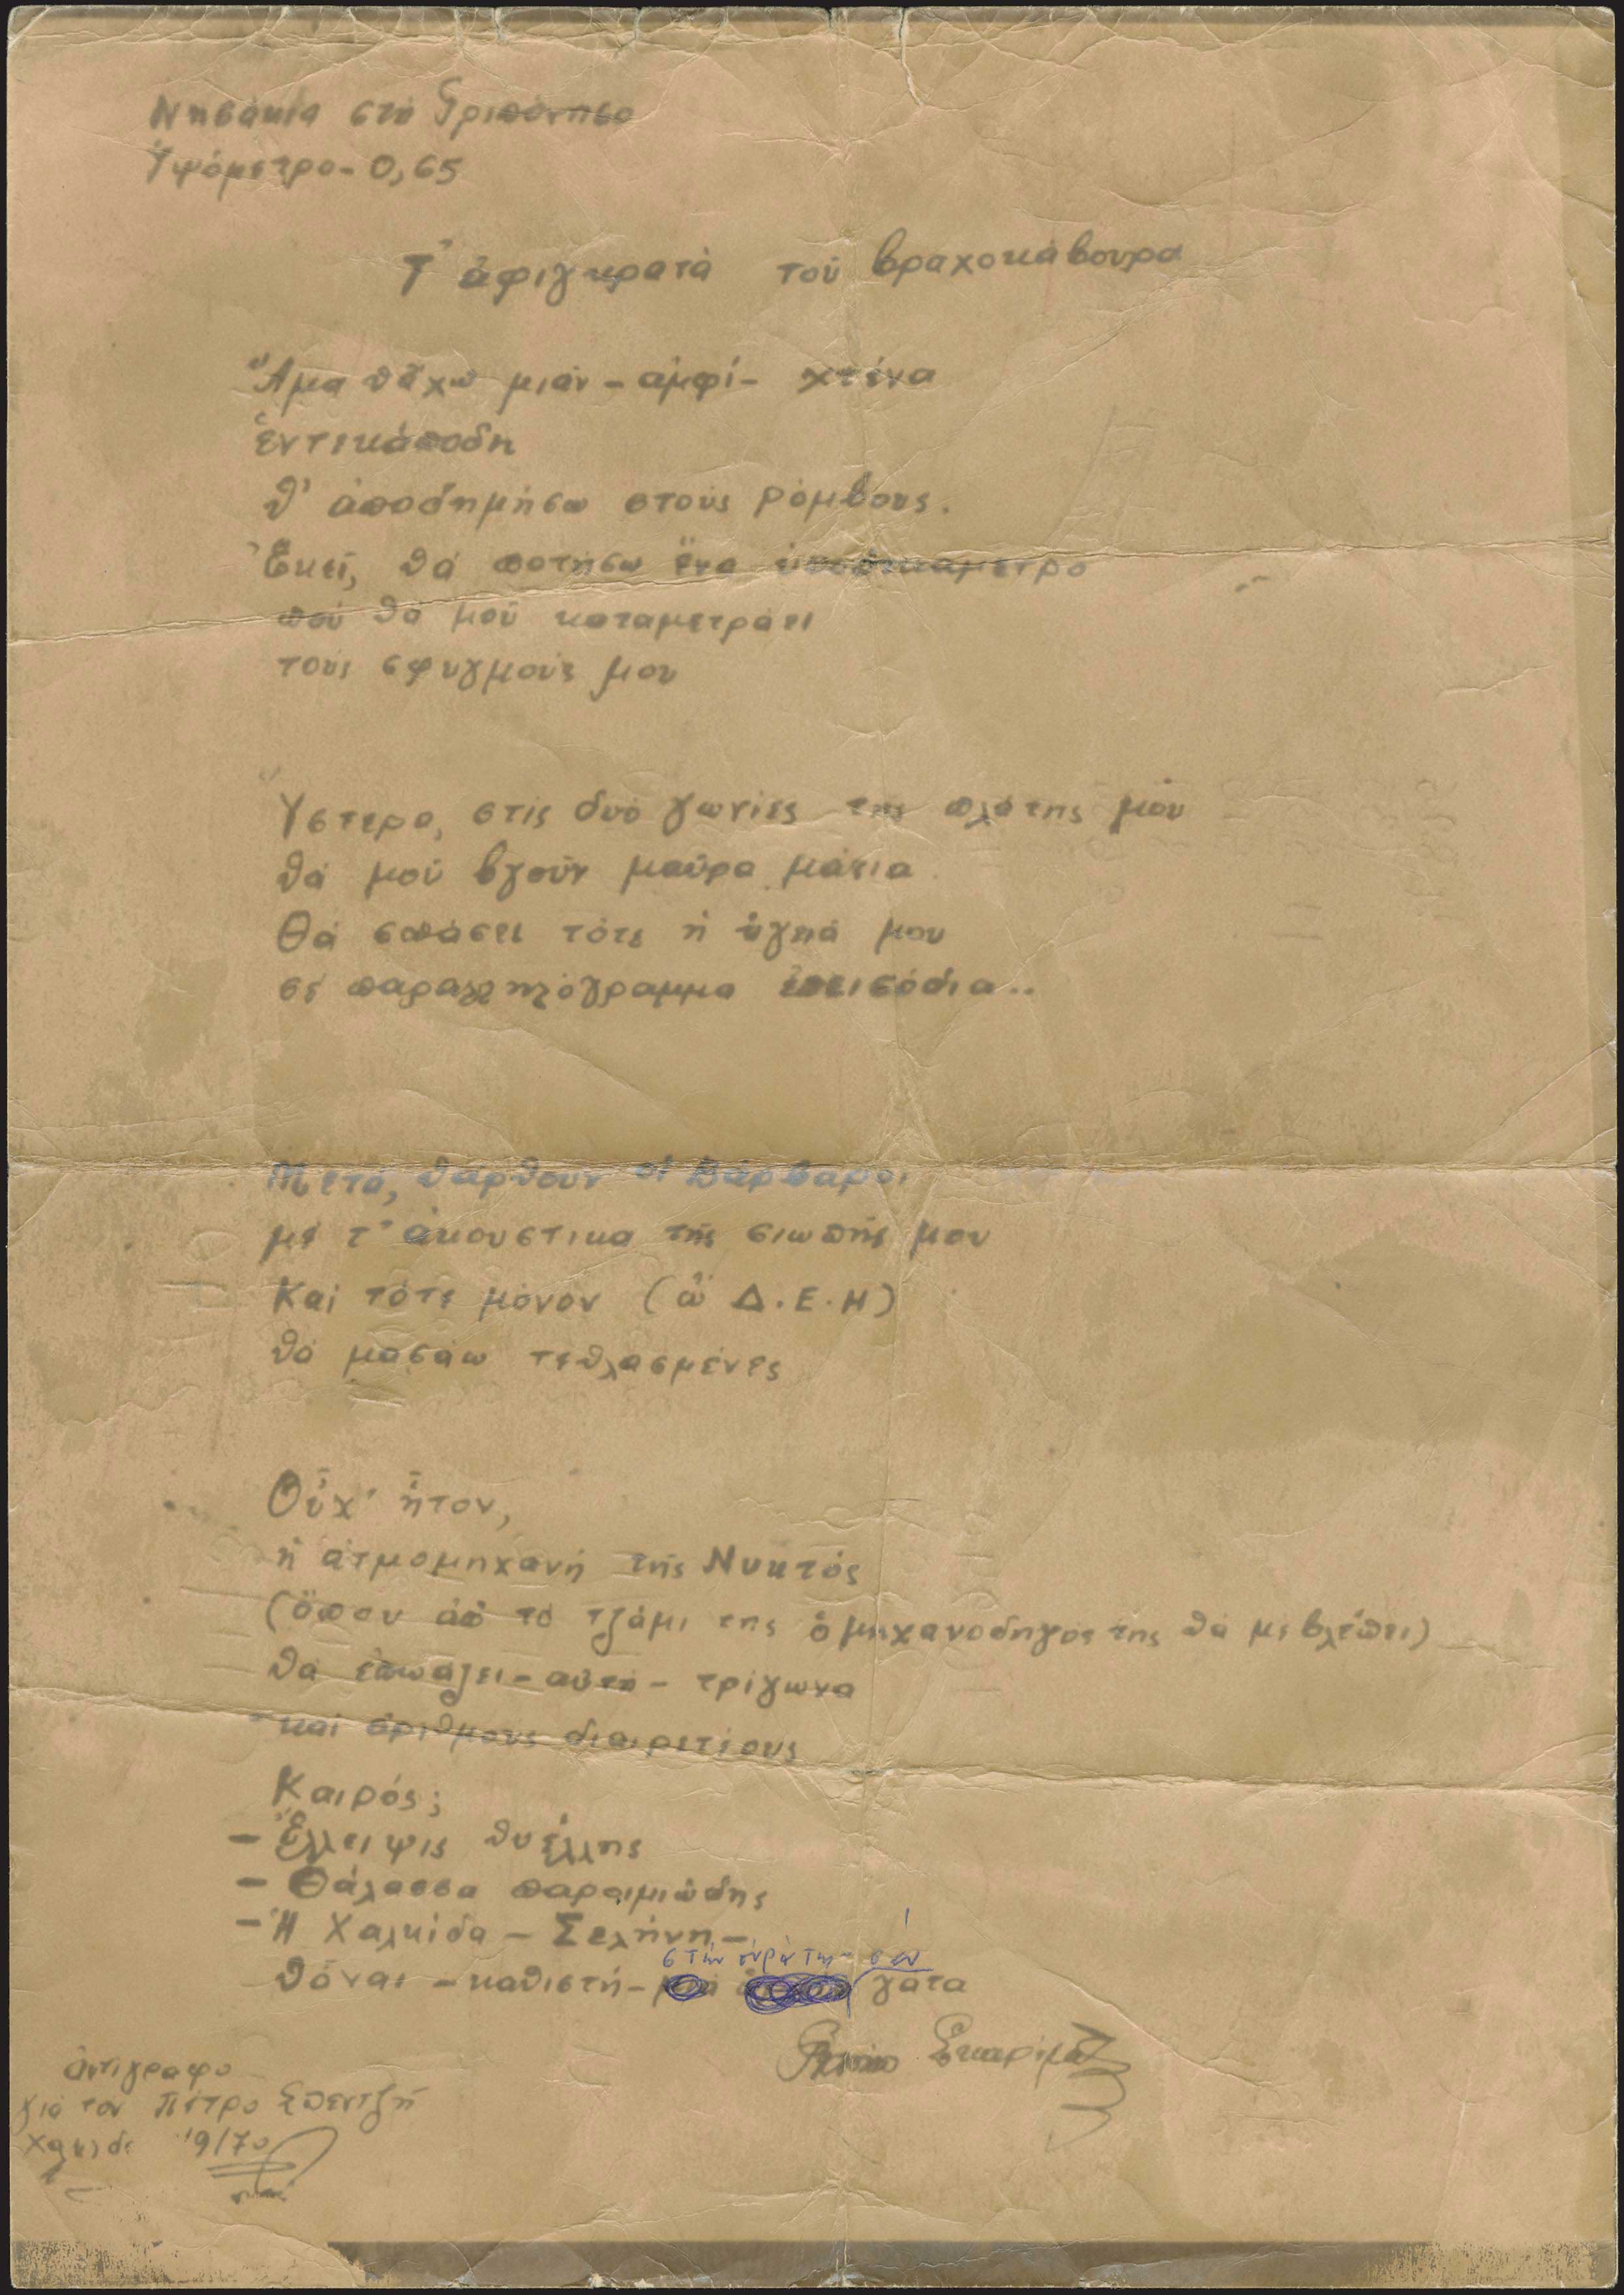 Νησάκια στὸ Τριπόνησο
Ὑψόμετρο - 0,65
Τ' ἀφιγκρατὰ τοῦ βραχοκάβουρα
Ἅμα θἄχω μιάν - αμφί - χτένα
ἑντεκάποδη
θ' ἀποδημήσω στούς ρόμβους.
Ἐκεῖ, θά πατήσω ἕνα ὑποδεκάμετρο
πού θά μοῦ καταμετράει
τούς σφυγμούς μου
Ὕστερα, στίς δυό γωνίες της πλάτης μου
θά μοῦ βγοῦν μαῦρα μάτια
Θά σπάσει τότε ἡ ὑγειά μου
σέ παραλληλόγραμμα ἐπεισόδια..
Μετά, θἄρθουν οἱ Βάρβαροι
μέ τ' ἀκουστικα τῆς σιωπῆς μου
Καί τότε μόνον (ὦ Δ.Ε.Η)
θά μασάω τεθλασμένες
Οὖχ' ἦτον,
ἡ ἀτμομηχανή τῆς Νυκτός
(ὅπου ἀπ τό τζάμι της ὁ μηχανοδηγός της θά με βλέπει)
θά ἐπωάζει - αὐτη - τρίγωνα
καί ἀριθμούς διαιρετέους
Καιρός;
- Ἔλλειψις θυέλλης
- Θάλασσα παροιμιώδης
- Ἡ Χαλκίδα - Σελήνη -
στήν οὐρά της σάν
θἆναι - καθιστή - γάτα
Γιάννης Σκαρίμπας
ἀντίγραφο
γιά τον Πέτρο Σπεντζῆ
Χαλκίδα 19/70